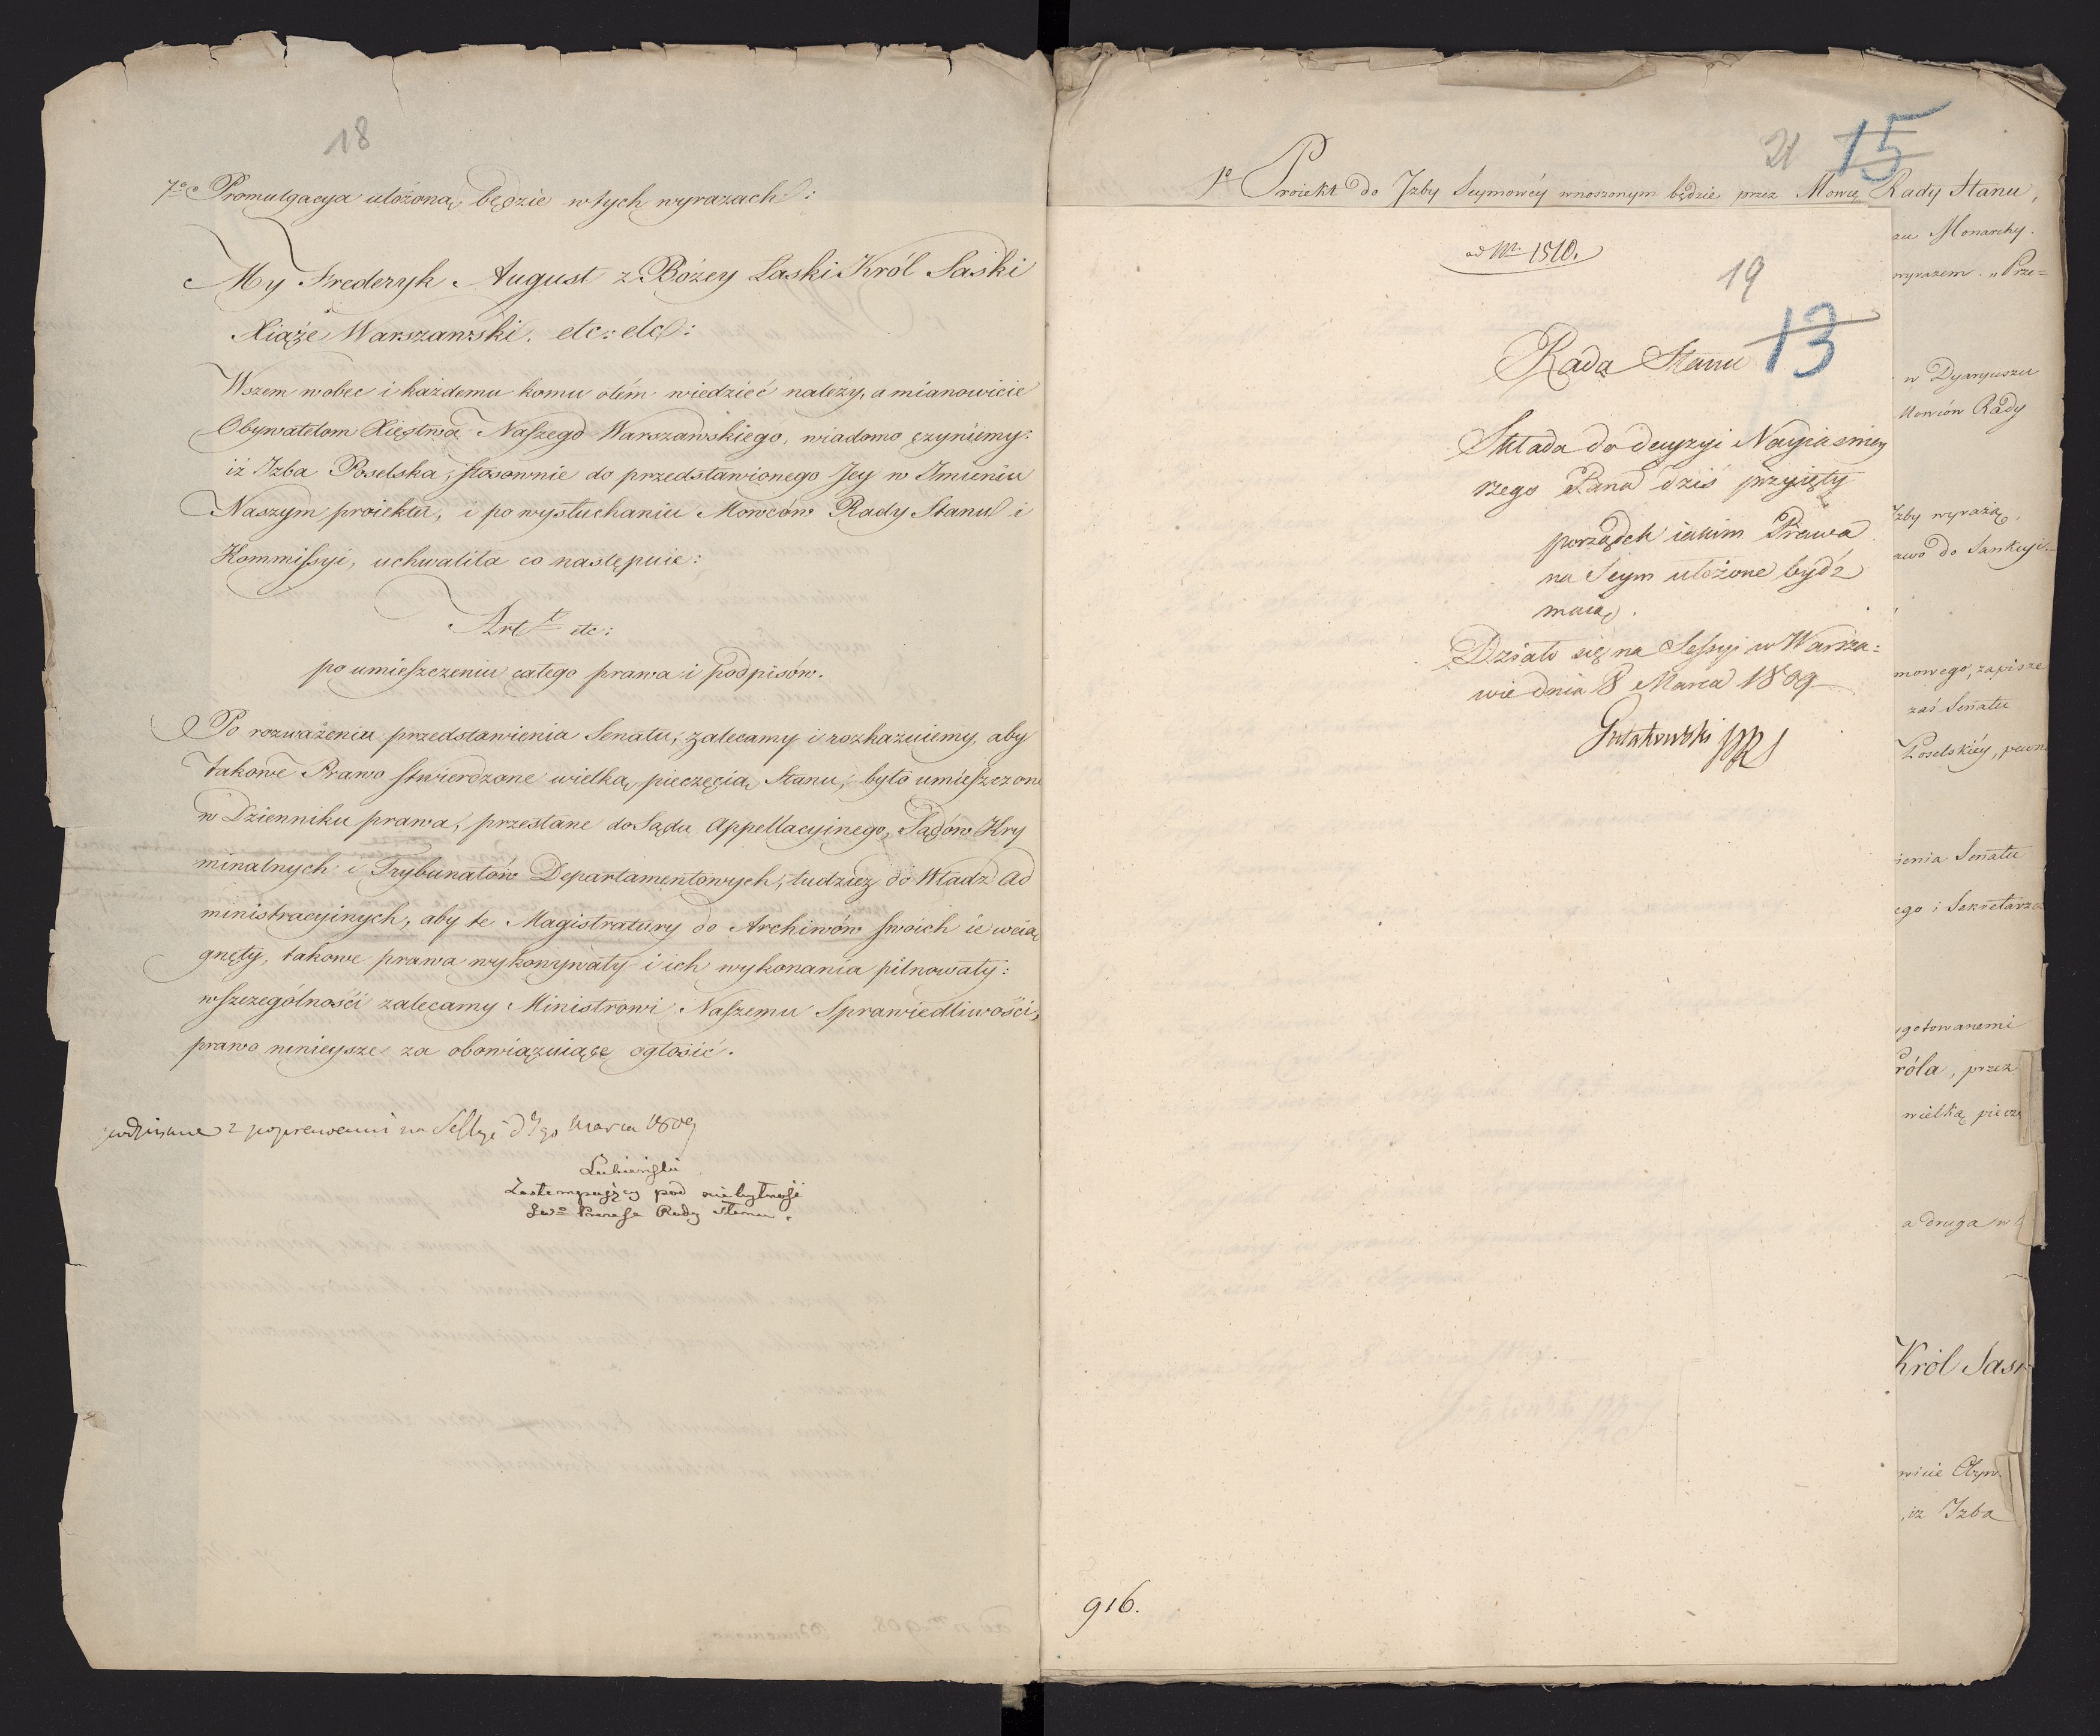 18
7º Promulgacya ułożoną będzie w tych wyrazach:
My Frederyk August z Bożey Łaski Król Saski
Xiąże Warszawski. etc: etc:
Wszem wobec i każdemu komu otém wiedzieć należy, a mianowicie
Obywatelom Xięstwa Naszego Warszawskiego, wiadomo czyniemy:
iż Izba Poselska, stosownie do przedstawionego Jey w Imieniu
Naszym proiektu, i po wysłuchaniu Mowców Rady Stanu i
Kommissyi, uchwaliła co następuie:
Art etc:
po umieszczeniu całego prawa i podpisów.
Po rozważeniu przedstawienia Senatu, zalecamy i rozkazuiemy, aby
takowe Prawo stwierdzone wielką pieczęcią Stanu, było umieszczone
w Dzienniku prawa, przesłane do Sądu Appellacyinego, Sądów Kry
minalnych i Trybunałów Departamentowych, tudzież do Władz Ad
ministracyinych, aby te Magistratury do Archiwów swoich ie wcią
gnęły, takowe prawa wykonywały i ich wykonania pilnowały:
w szczególności zalecamy Ministrowi Naszemu Sprawiedliwości,
prawo ninieysze za obowiązuiące ogłosić.
podpisane z poprawami na Sessyi d 7go Marca 1809
Lubieński
Zastempujący pod niebytność
Prezesa Rady Stanu.
21 15
1º Proiekt do Izby Seymowéy wnoszonym będzie przez Mowcę Rady Stanu,
zu Monarchy.
wyrazem. „Prze=
w Dyaryuszu
Mowców Rady
Izby wyrażą,
awo do Sankcyi
mowego, zapisze
zaś Senatu
Poselskiéy, pewn
ienia Senatu
ego i Sekretarza
gotowanemi
róla, przez
wielką piecz
a druga w
Król Sas
wicie Obyw
, iż Izba
ad Nr 1510.
19
13
Rada Stanu
Składa do decyzyi Nayiaśniey
rzego Pana dziś przyięty
porządek iakim Prawa
na Seym ułożone bydź
maią.
Działo się na Sessyi w Warsza=
wie dnia 8 Marca 1809
Gutakowski PRS
916.